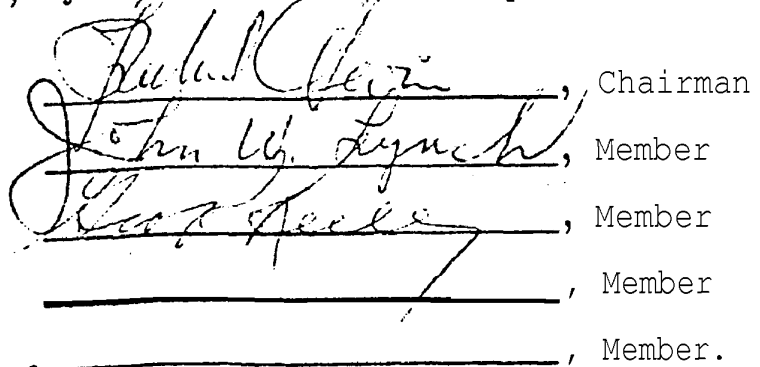 , Chairman
John W. Lynch, Member
, Member
, Member
, Member.